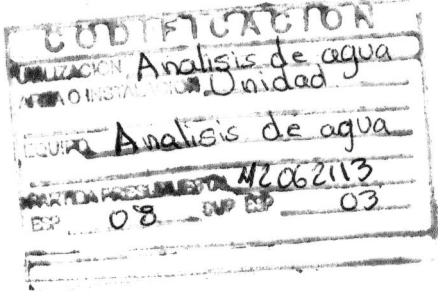 CODIFICACION
UTILIZACION Analisis de agua
AREA O INSTALACION Unidad
EQUIPO Analisis de agua
PARTIDA PRESUPUESTO 42062113
ESP 08 DUP ESP 03